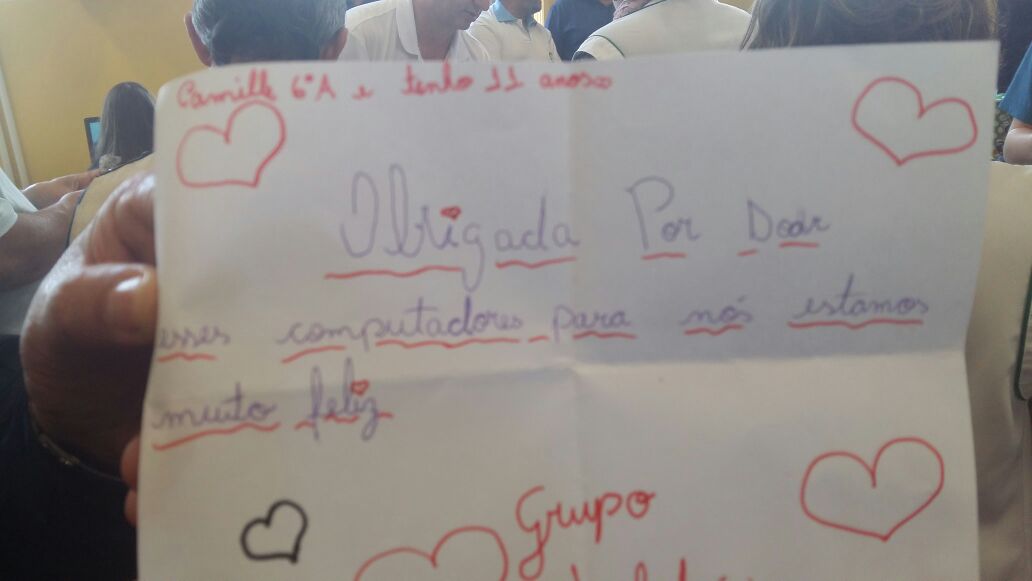 Camille 6°A e tenho 11 anos
Obrigada Por Doar
esses computadores para nós estamos
muito feliz
Grupo